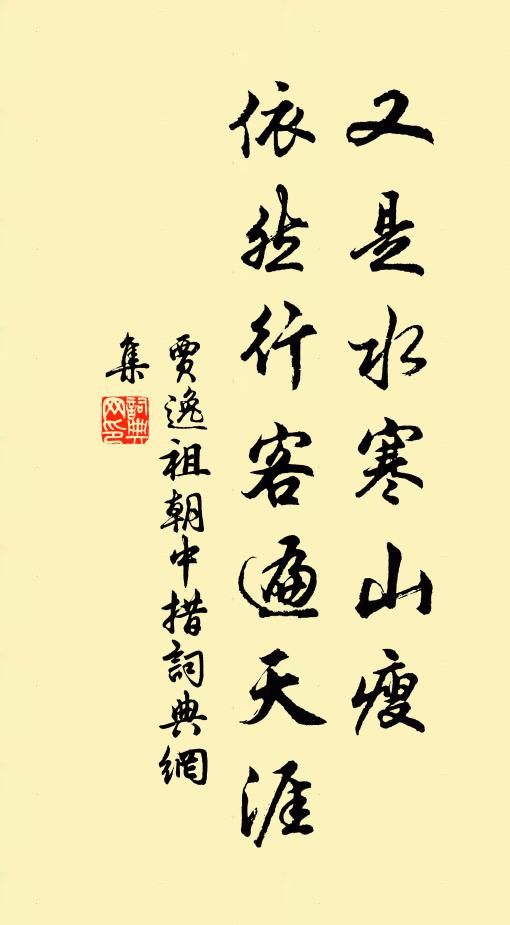 又是水寒山瘦
依然行客遍天涯
賈逸祖朝中措詞典網
集
詞典
网印